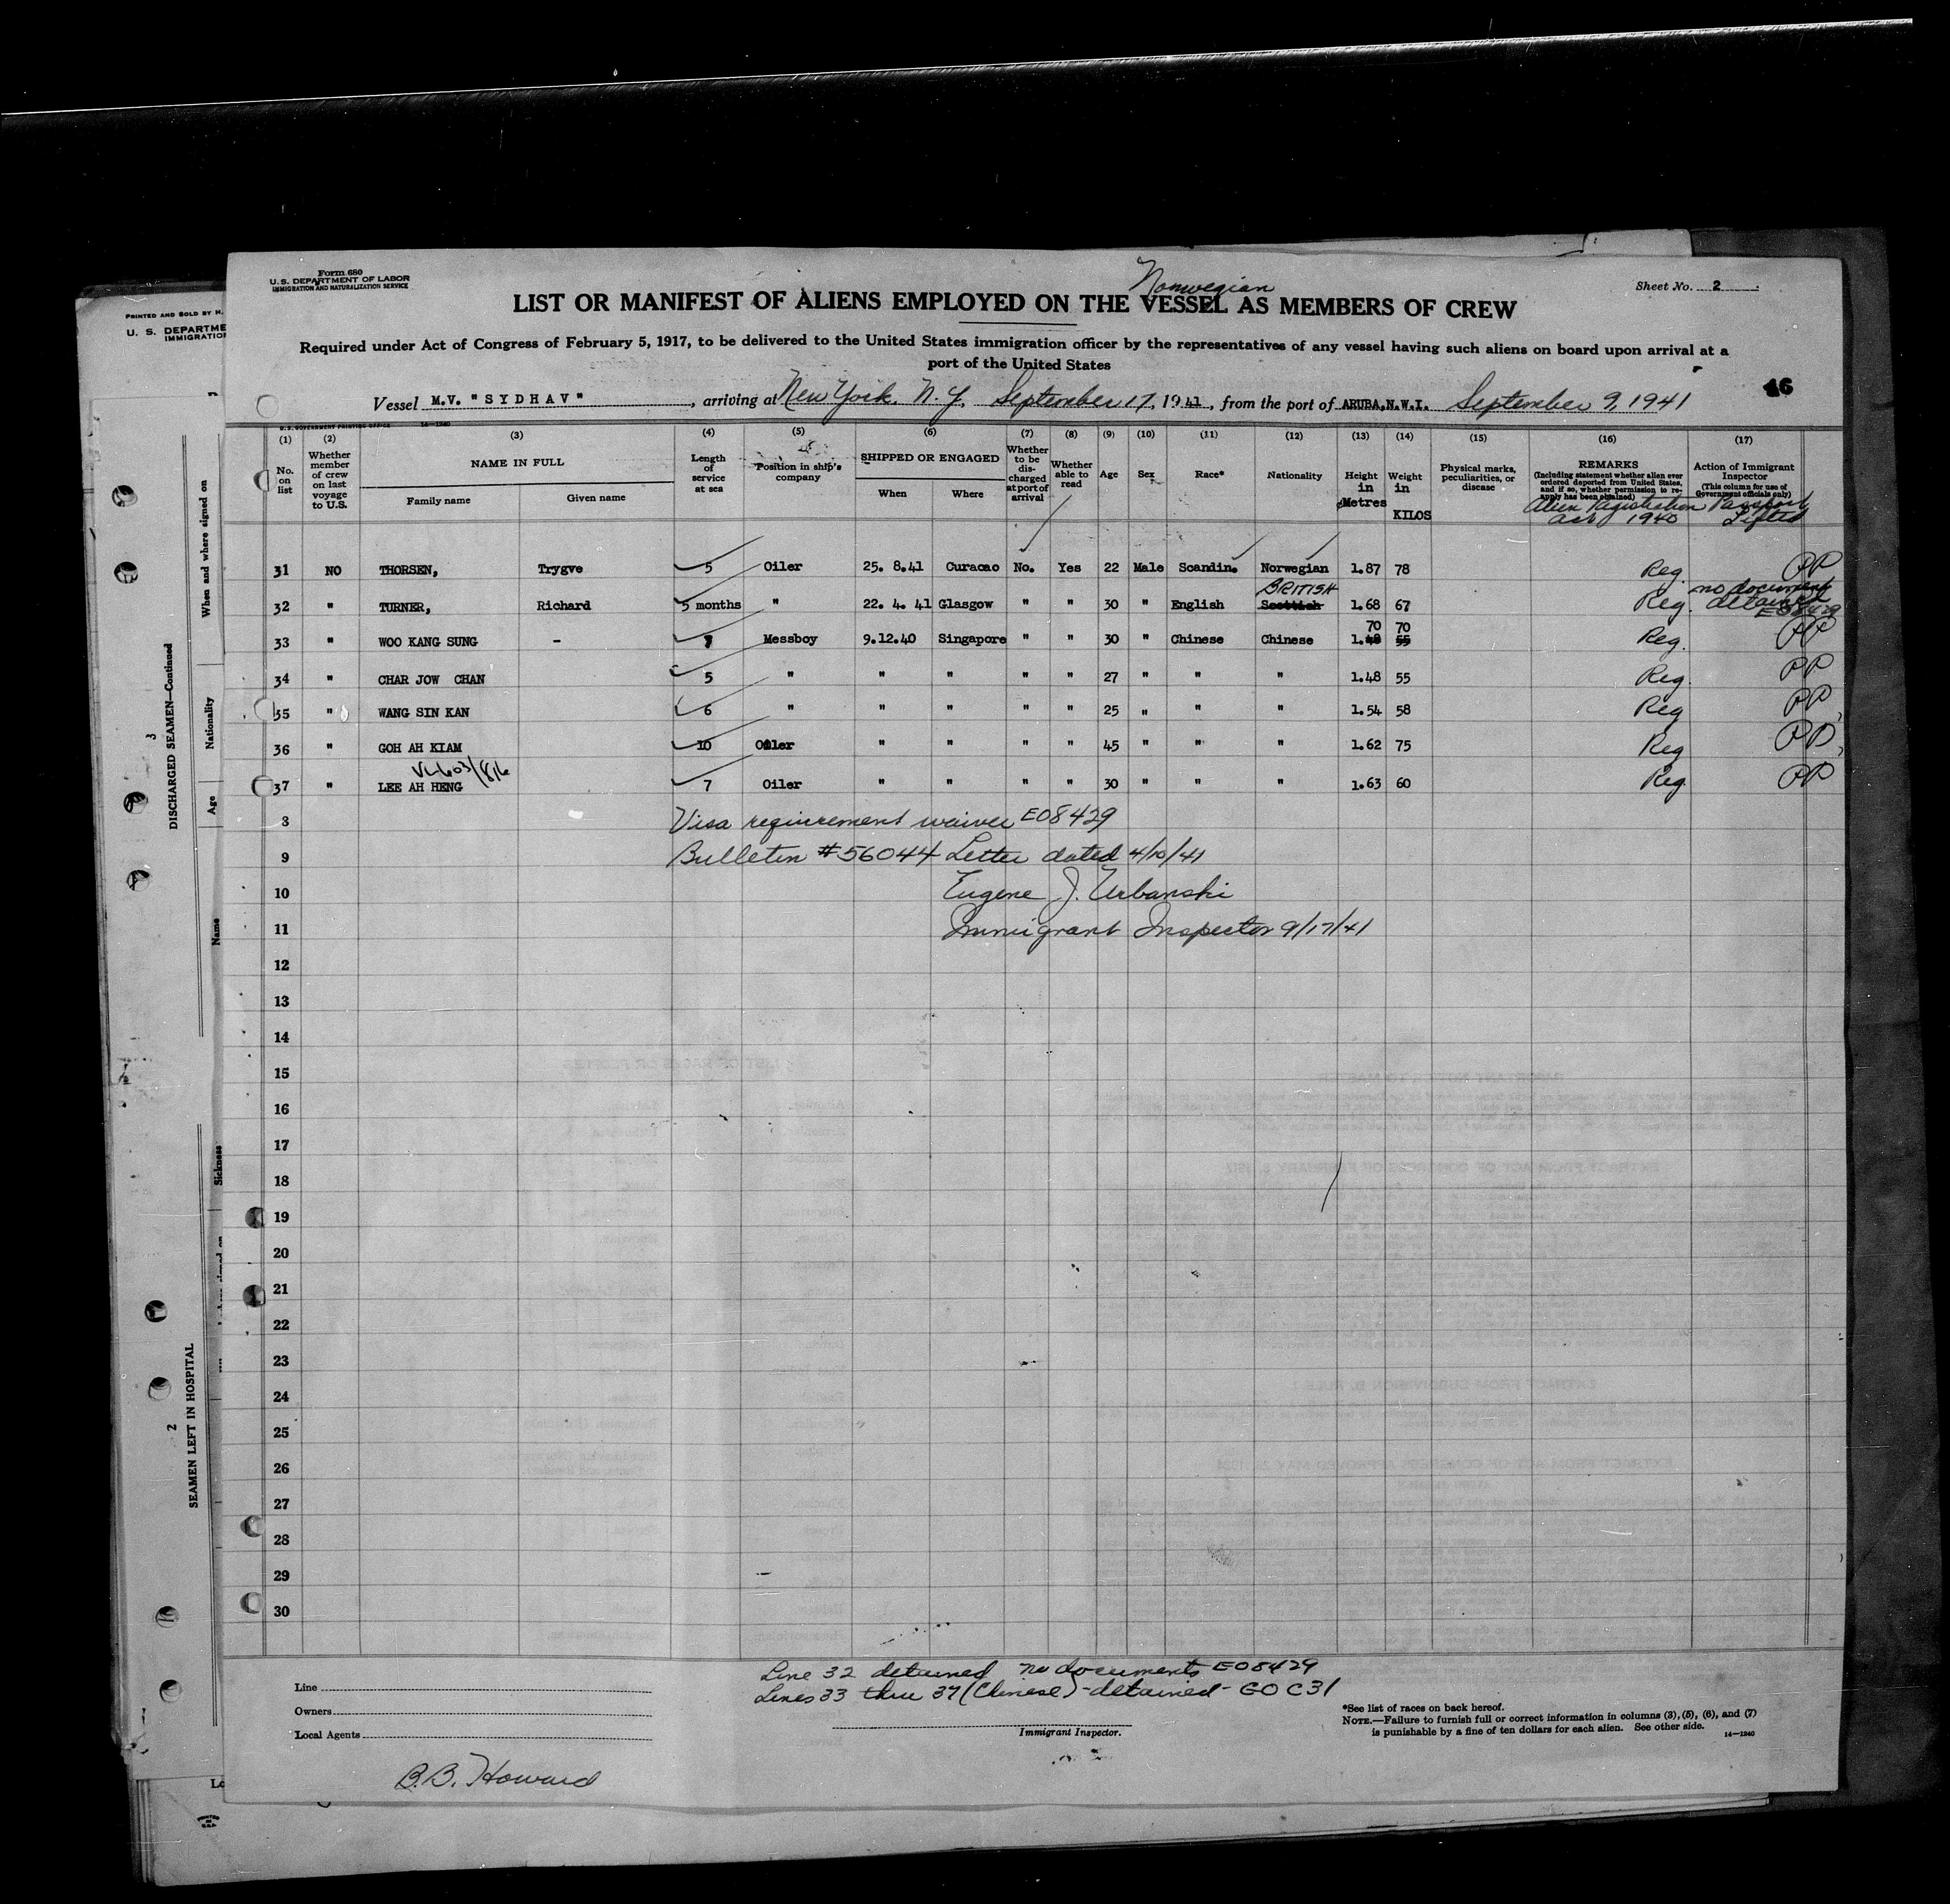 Form 680
U.S. DEPARTMENT OF LABOR
IMMIGRATION AND NATURALIZATION SERVICE
Norwegian
Sheet No. 2
LIST OR MANIFEST OF ALIENS EMPLOYED ON THE VESSEL AS MEMBERS OF CREW
Required under Act of Congress of February 5, 1917, to be delivered to the United States immigration officer by the representatives of any vessel having such aliens on board upon arrival at a
port of the United States
Vessel M.V. "SYDHAV", arriving at New York. N.Y. September 17, 1941, from the port of ARUBA, N.W.I. September 9, 1941
U.S. GOVERNMENT PRINTING OFFICE 14-1240
(1) (2) (3) (4) (5) (6) (7) (8) (9) (10) (11) (12) (13) (14) (15) (16) (17)
No. on list
Whether member of crew on last voyage to U.S.
NAME IN FULL
Family name
Given name
Length of service at sea
Position in ship's company
SHIPPED OR ENGAGED
When
Where
Whether to be discharged at port of arrival
Whether able to read
Age
Sex
Race*
Nationality
Height in Metres
Weight in KILOS
Physical marks, peculiarities, or disease
REMARKS
(Including statement whether alien ever ordered deported from United States, and if so, whether permission to re-apply has been obtained)
Alien Registration Act 1940
Action of Immigrant Inspector
(This column for use of Government officials only)
Passport Lifted
31 NO THORSEN, Trygve 5 Oiler 25. 8.41 Curacao No. Yes 22 Male Scandin. Norwegian 1.87 78 Reg. PP
BRITISH
32 " TURNER, Richard 5 months " 22. 4. 41 Glasgow " " 30 " English Scottish 1.68 67 Reg. no document detained E08429
70 70
33 " WOO KANG SUNG - 7 Messboy 9.12.40 Singapore " " 30 " Chinese Chinese 1.48 55 Reg. PP
34 " CHAR JOW CHAN 5 " " " " " 27 " " " 1.48 55 Reg. PP
35 " WANG SIN KAN 6 " " " " " 25 " " " 1.54 58 Reg PP
36 " GOH AH KIAM 10 Oiler " " " " 45 " " " 1.62 75 Reg PP
37 " LEE AH HENG 7 Oiler " " " " 30 " " " 1.63 60 Reg. PP
8 Visa requirement waiver E08429
9 Bulletin #56044 Letter dated 4/10/41
10 Eugene J. Urbanski
11 Immigrant Inspector 9/17/41
12
13
14
15
16
17
18
19
20
21
22
23
24
25
26
27
28
29
30
Line 32 detained no documents E08429
Lines 33 thru 37 (Chinese) - detained - GO C31
Line
Owners
Local Agents
Immigrant Inspector.
*See list of races on back hereof.
NOTE.—Failure to furnish full or correct information in columns (3), (5), (6), and (7)
is punishable by a fine of ten dollars for each alien. See other side.
14-1240
B.B. Howard
PRINTED AND SOLD BY H.
U. S. DEPARTME
IMMIGRATIO
When and where signed on
DISCHARGED SEAMEN—Continued
3
Nationality
Age
Name
Sickness
SEAMEN LEFT IN HOSPITAL
2